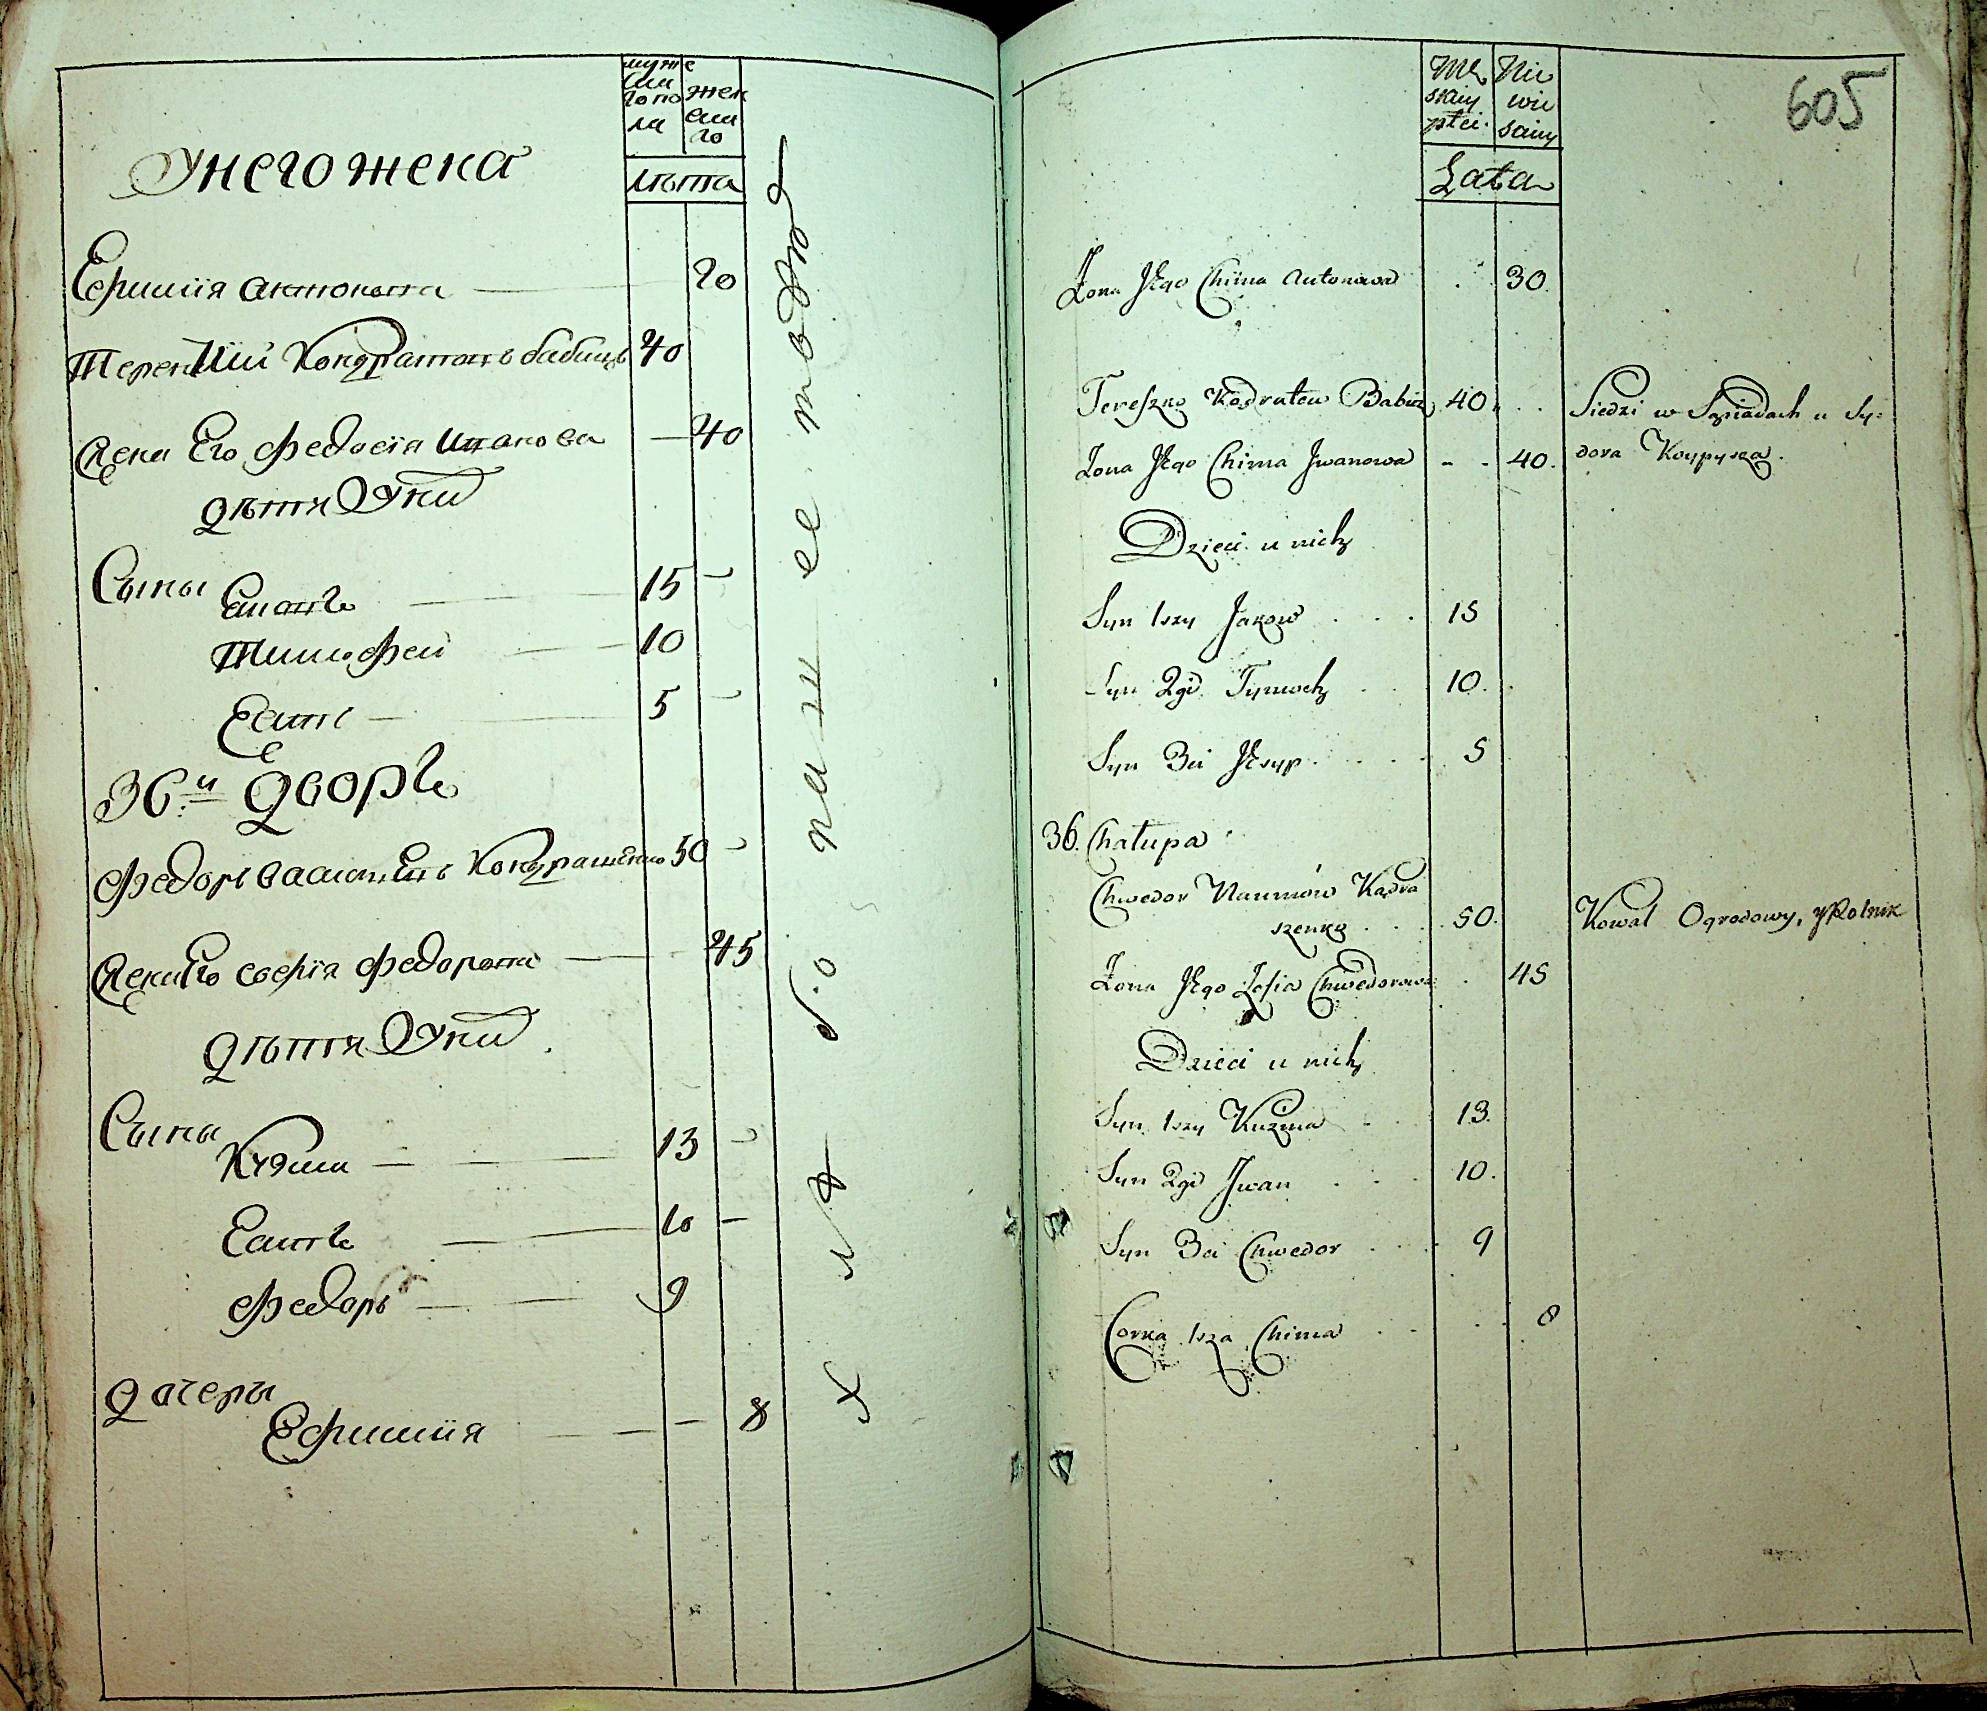 муже
ска
го по
ла
жен
ска
го
лѣта
У него жена
Ефимия Антонова 20
Терентий Кондратовъ бабичъ 40
Жена Его Федосия Иванова 40
дѣти У них
Сыны
15
Тимофей 10
Есипъ 5
36й дворъ
Федоръ Кондрашенко 50
Жена Его София Федорова 45
дѣти У них
Сыны
Кузма 13
10
Федоръ 9
дочеры
Ефимия 8
605
Mę
skiey
płci
Nie
wie
sciey
Lata
Żona Jego Chima Antonowa 30
Tereszko Kodratow Babicz 40
Siedzi w Sąsiadach u Sy:
Żona Jego Chima Jwanowa 40
dora
Dzieci u nich
Syn 1szy Jakow 15
Syn 2gi Tymoch 10
Syn 3ci Jesyp 5
36. Chałupa
Chwedor Naumow Kądra
szenko 50
Kowal Ogrodowy, y Rolnik
Żona Jego Zofia Chwedorowa 45
Dzieci u nich
Syn 1szy Kuzma 13
Syn 2gi Jwan 10
Syn 3ci Chwedor 9
Corka 1sza Chima 8